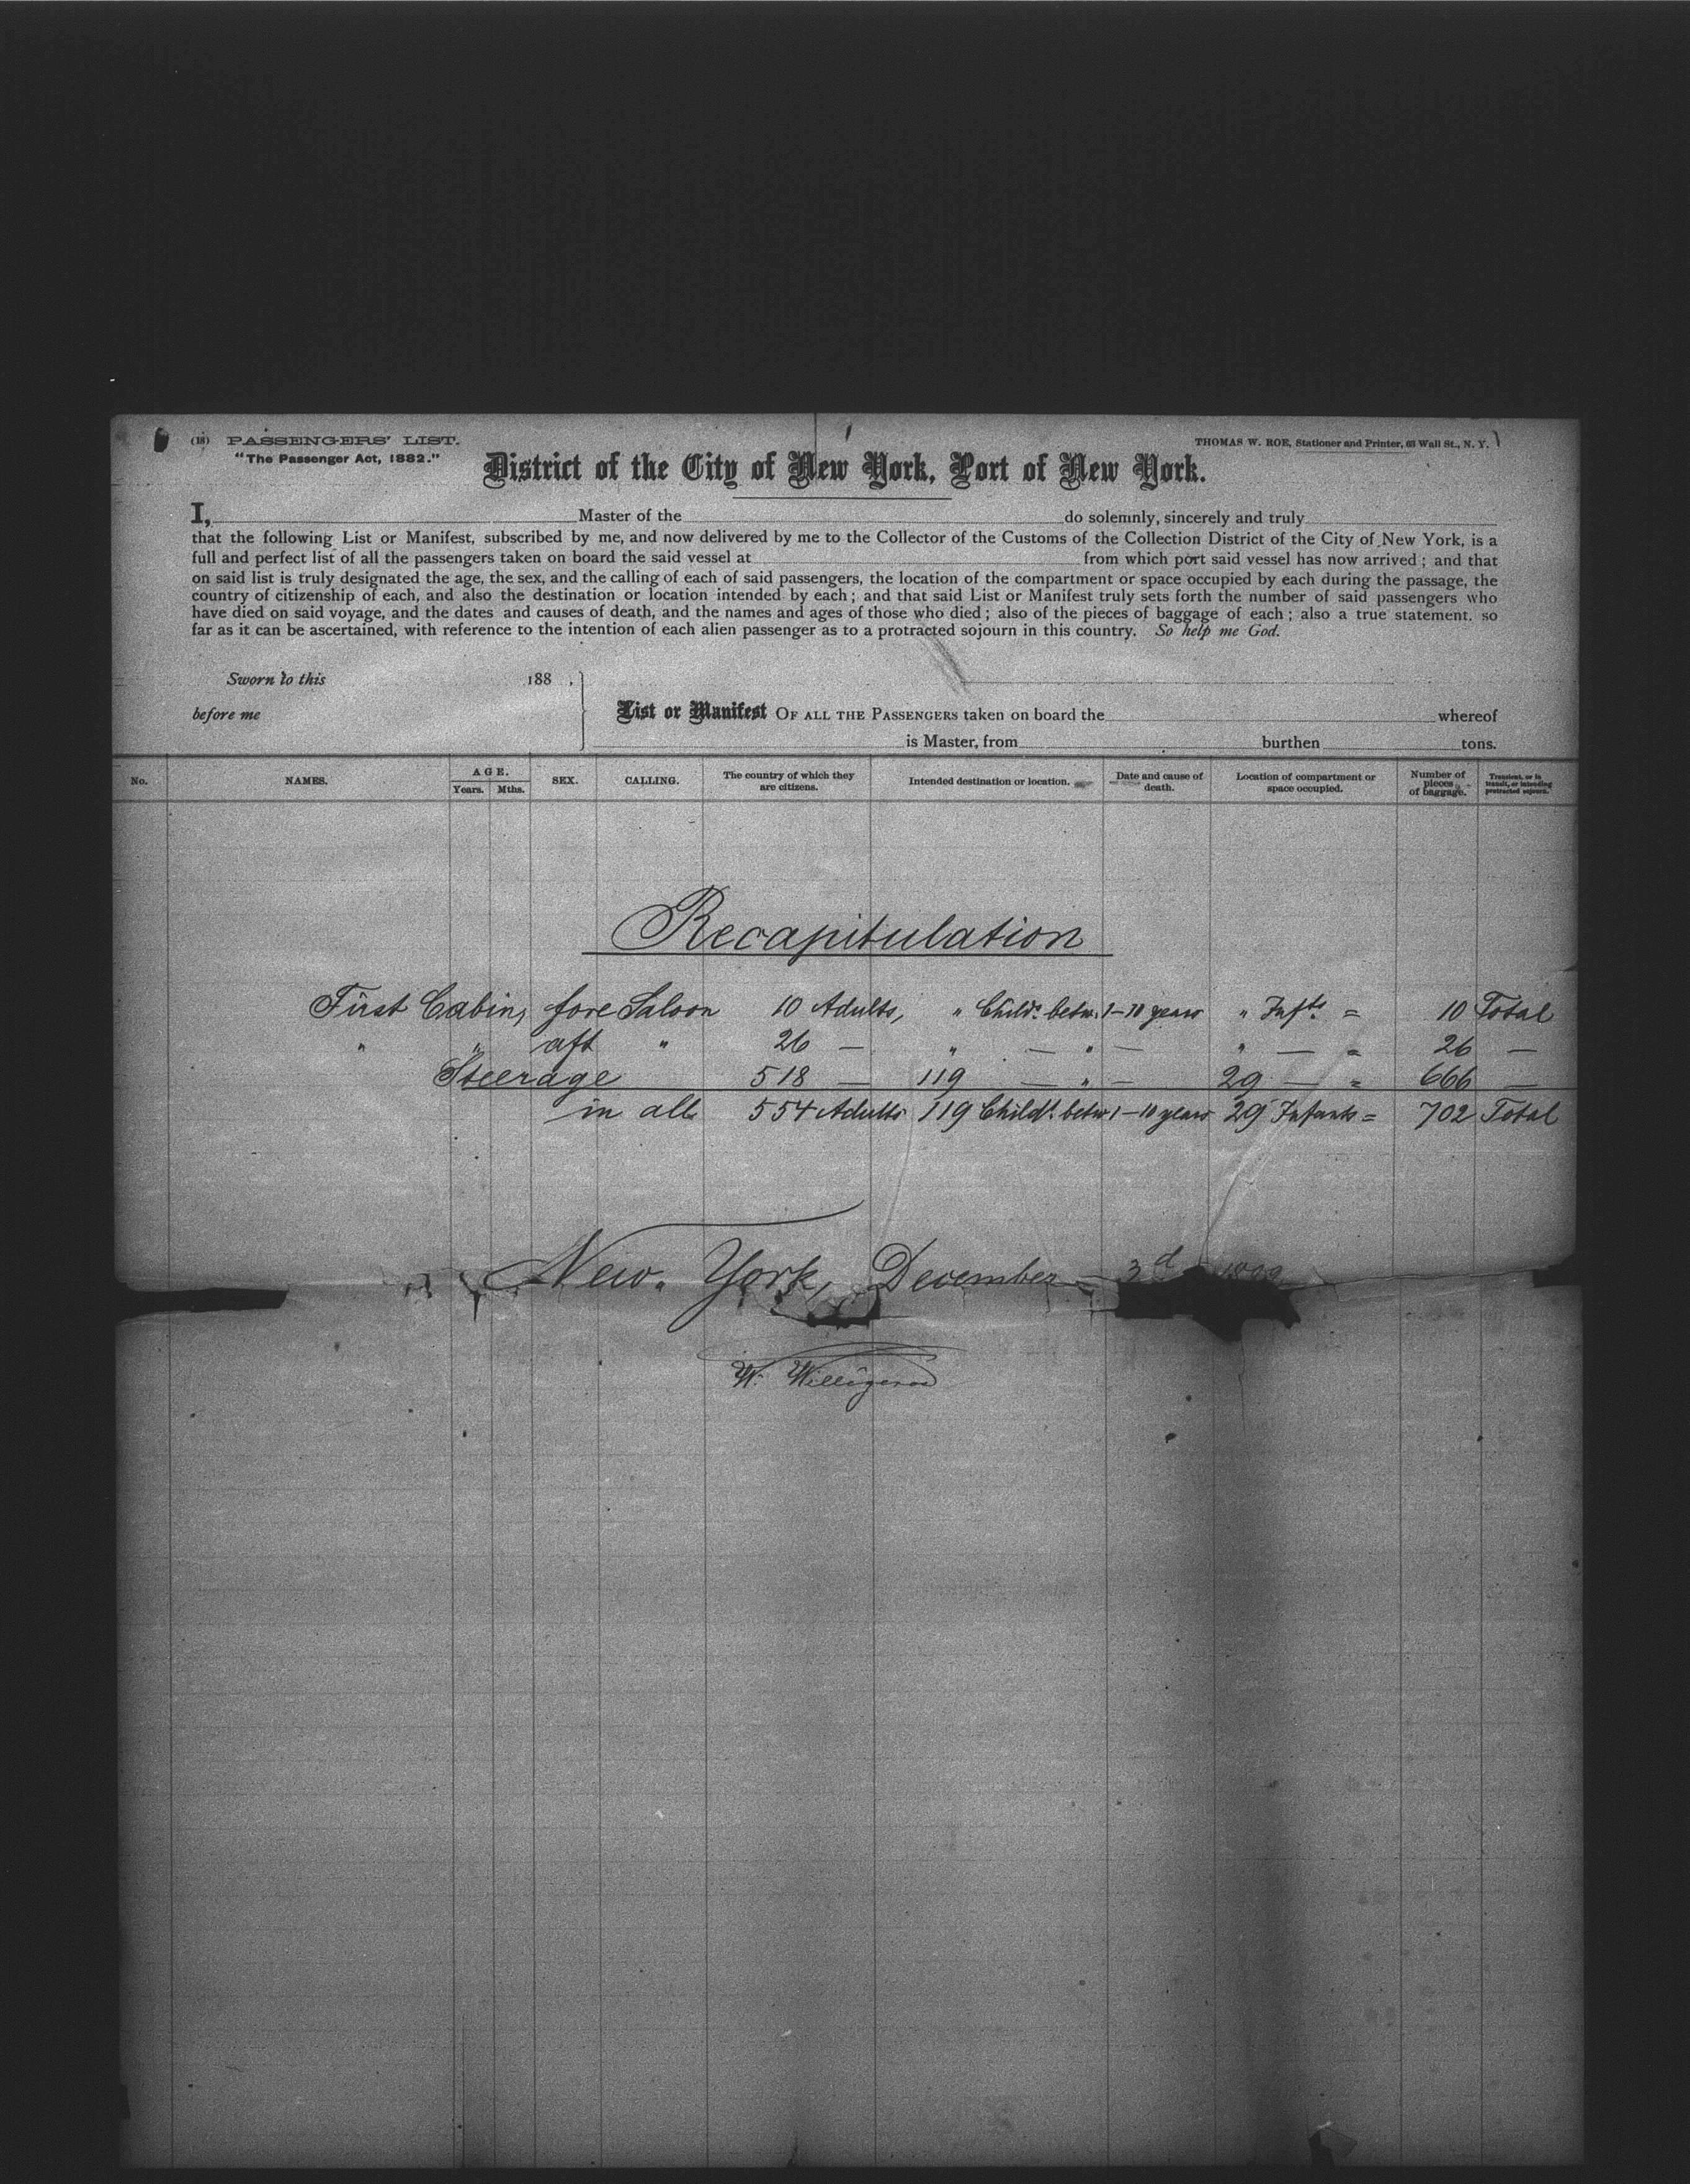 (18) PASSENGERS' LIST.
THOMAS W. ROE, Stationer and Printer, 63 Wall St., N. Y.
"The Passenger Act, 1882."
District of the City of New York, Port of New York.
I, Master of the do solemnly, sincerely and truly
that the following List or Manifest, subscribed by me, and now delivered by me to the Collector of the Customs of the Collection District of the City of New York, is a
full and perfect list of all the passengers taken on board the said vessel at from which port said vessel has now arrived; and that
on said list is truly designated the age, the sex, and the calling of each of said passengers, the location of the compartment or space occupied by each during the passage, the
country of citizenship of each, and also the destination or location intended by each; and that said List or Manifest truly sets forth the number of said passengers who
have died on said voyage, and the dates and causes of death, and the names and ages of those who died; also of the pieces of baggage of each; also a true statement, so
far as it can be ascertained, with reference to the intention of each alien passenger as to a protracted sojourn in this country. So help me God.
Sworn to this 188 ,
before me
List or Manifest OF ALL THE PASSENGERS taken on board the whereof
is Master, from burthen tons.
No. NAMES. AGE. Years. Mths. SEX. CALLING. The country of which they are citizens. Intended destination or location. Date and cause of death. Location of compartment or space occupied. Number of pieces of baggage. Transient, or in transit, or intending protracted sojourn.
Recapitulation
First Cabin, fore Saloon 10 Adults, " Child. betw. 1-10 years " Infts = 10 Total
" " aft " 26 — " — " — " — = 26 —
Steerage 518 — 119 — " — 29 — = 666 —
in all 554 Adults 119 Child. betw. 1-10 years 29 Infants = 702 Total
New York, December 3d
W. Willigerod